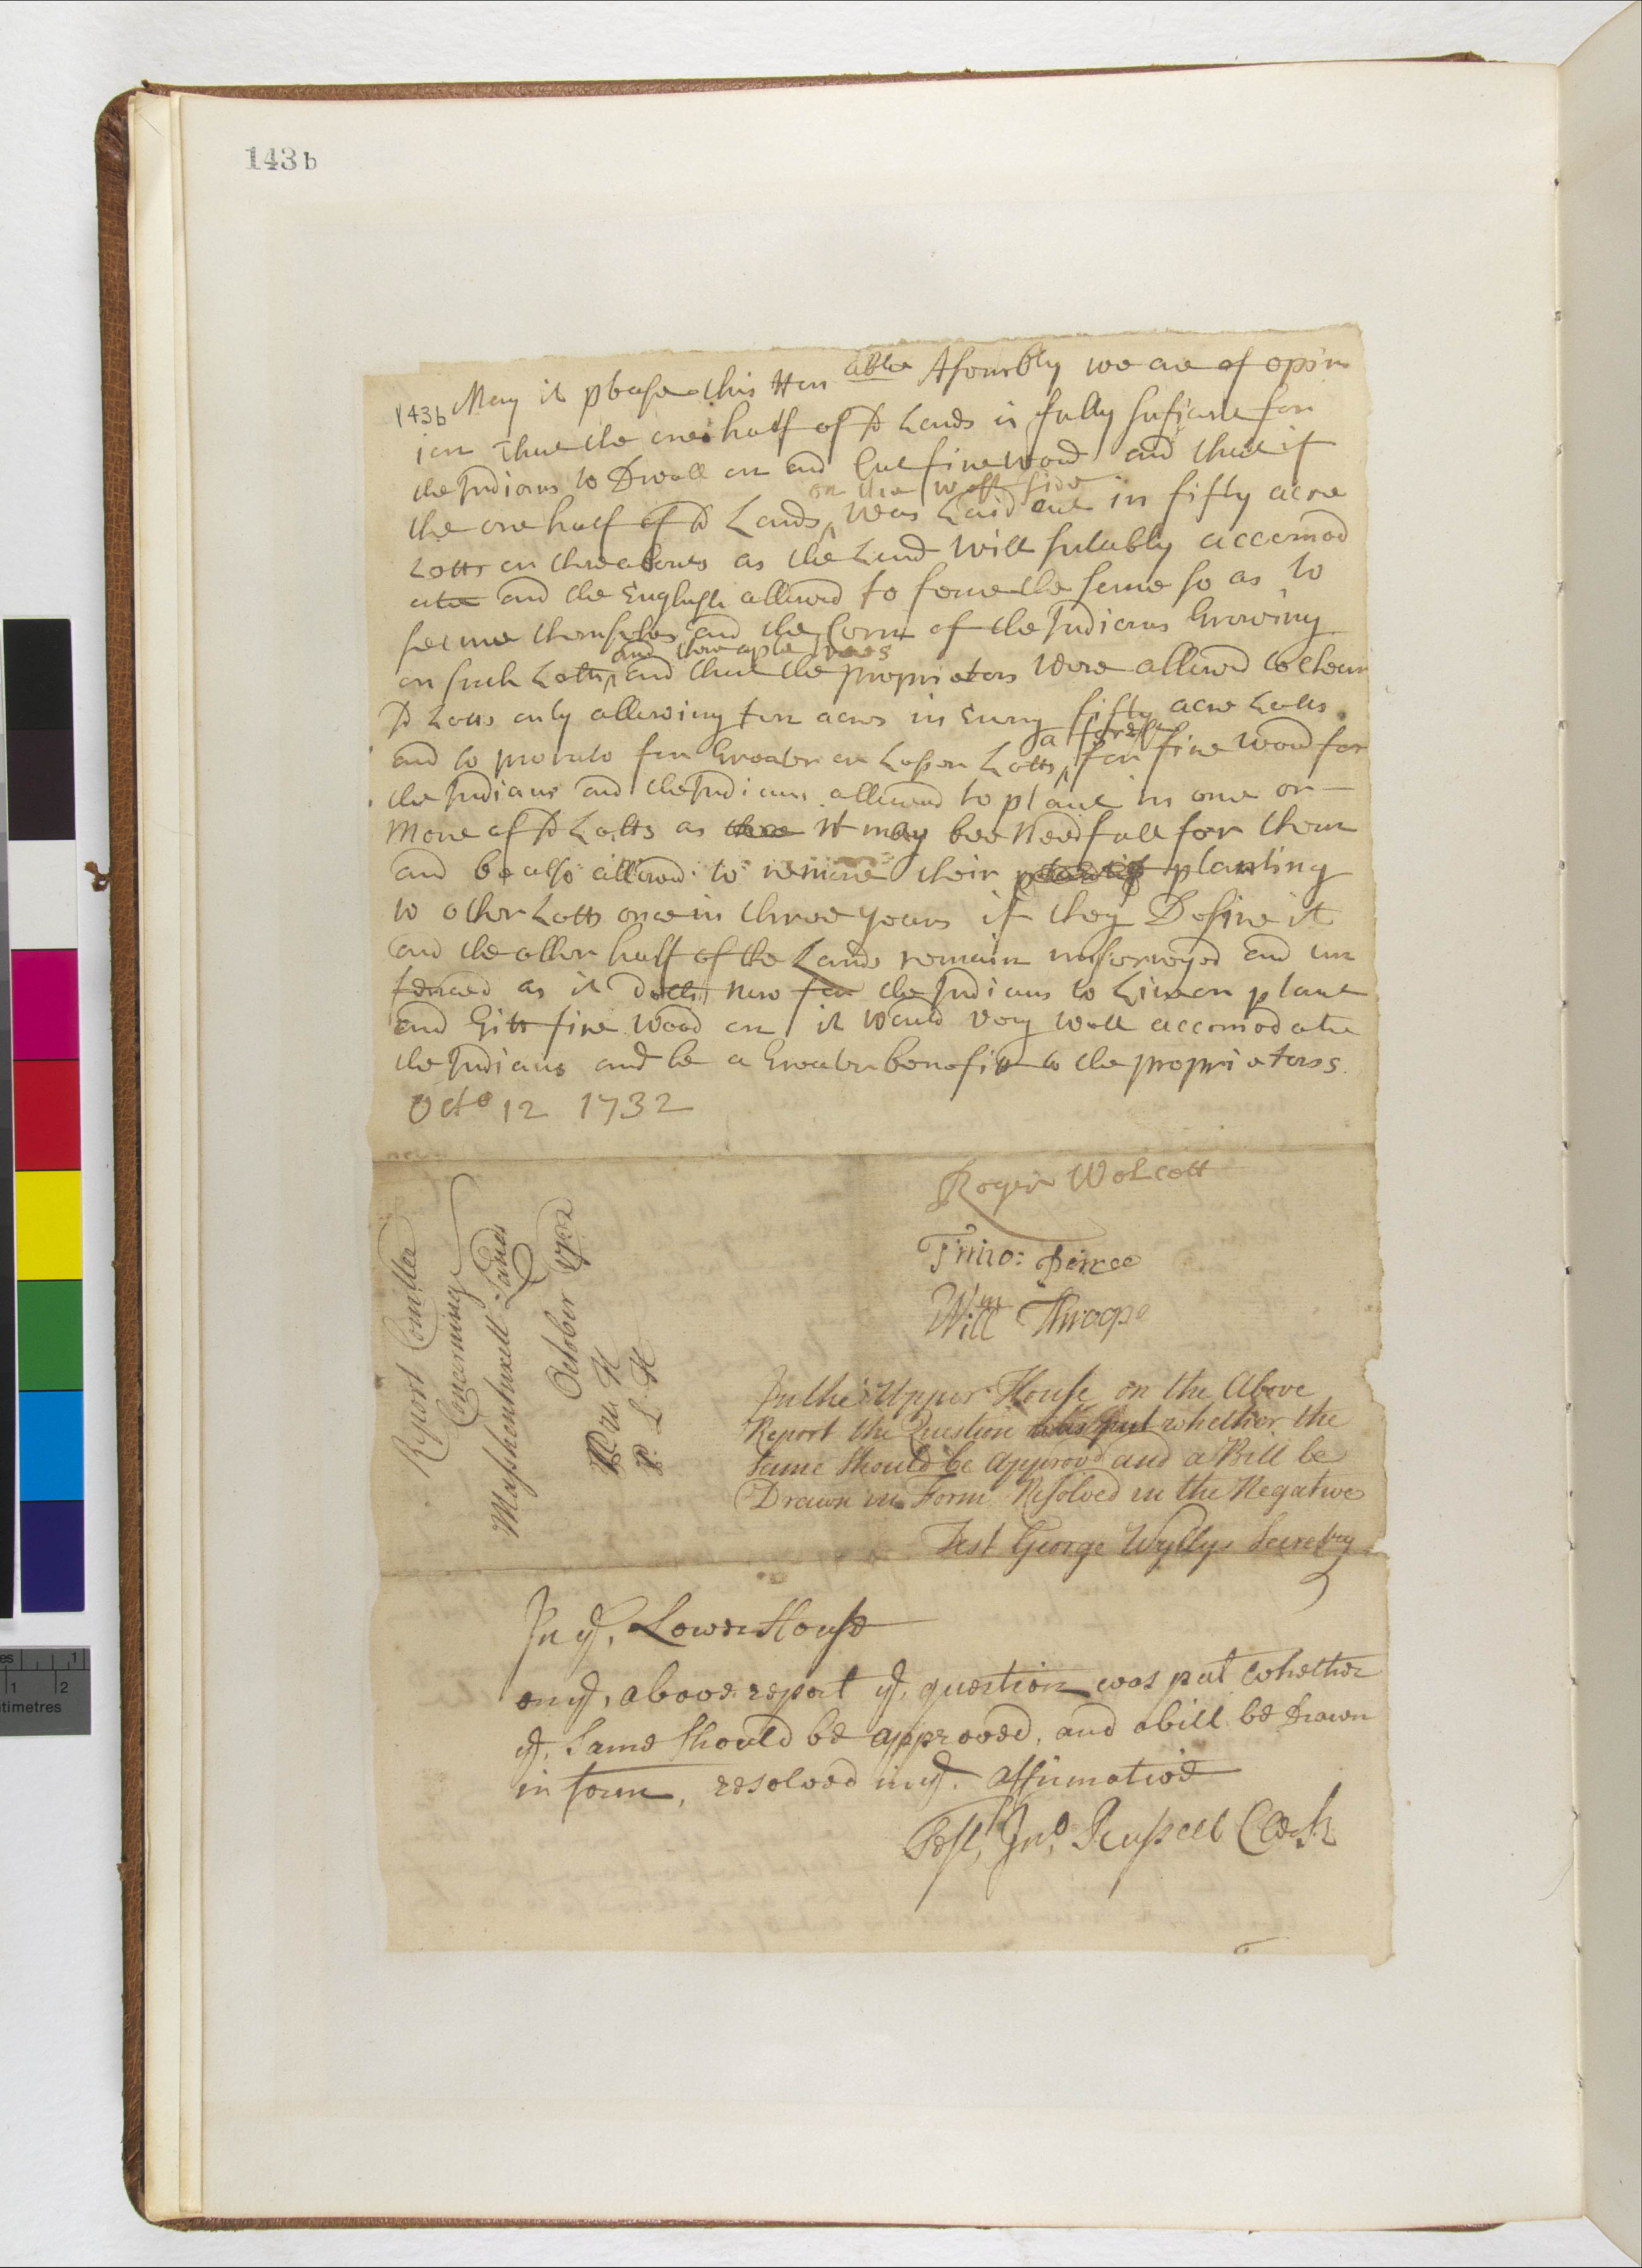 143b
143b May it please this Hon able Assembly we are of opin
ion That the one half of sd Lands is fully suficient for
the Indians to Dwell on and Cut fire wood and that if
on the West side
the one half of sd Lands ^ was Laid out in fifty acre
Lotts or thereabouts as the Land will sutably accomod
ate and the English allowed to fence the same so as to
secure themselves and the Corn of the Indians Growing
and there aple trees
on such Lotts ^ and that the proprietors were allowed to clear
sd Lotts only allowing ten acres in Every fifty acre Lotts
aforesd
and to prorato for Greater or Lesser Lotts ^ for fire wood for
the Indians and the Indians allowed to plant in one or
More of sd Lotts as there it may bee Needfull for them
and be also allowed to remove their planting
to other Lotts once in three years if they Desire it
and the other half of the Lands remain unserveyed and un
fenced as it Doth now for the Indians to Live on plant
and Gitt fire wood on it would very well accomodate
the Indians and be a Greater benefitt to the proprietorss.
Octo 12 1732
Roger Wolcott
Timo: Peirce
Willm Throope
Report Comttee
Concerning
Mashhentuxett Lands
October 1732
N u H
P. L H
In the Upper House on the Above
Report the Question was put whether the
same should be approov'd and a Bill be
Drawn in Form Resolved in the Negative
Test George Wyllys Secretry
In ye, Lower House
on ye, above report ye, question was put whether
ye, same should be approoved, and a bill be drawn
in form, resolved in ye. affirmative
Test, Jno, Russell Clerk